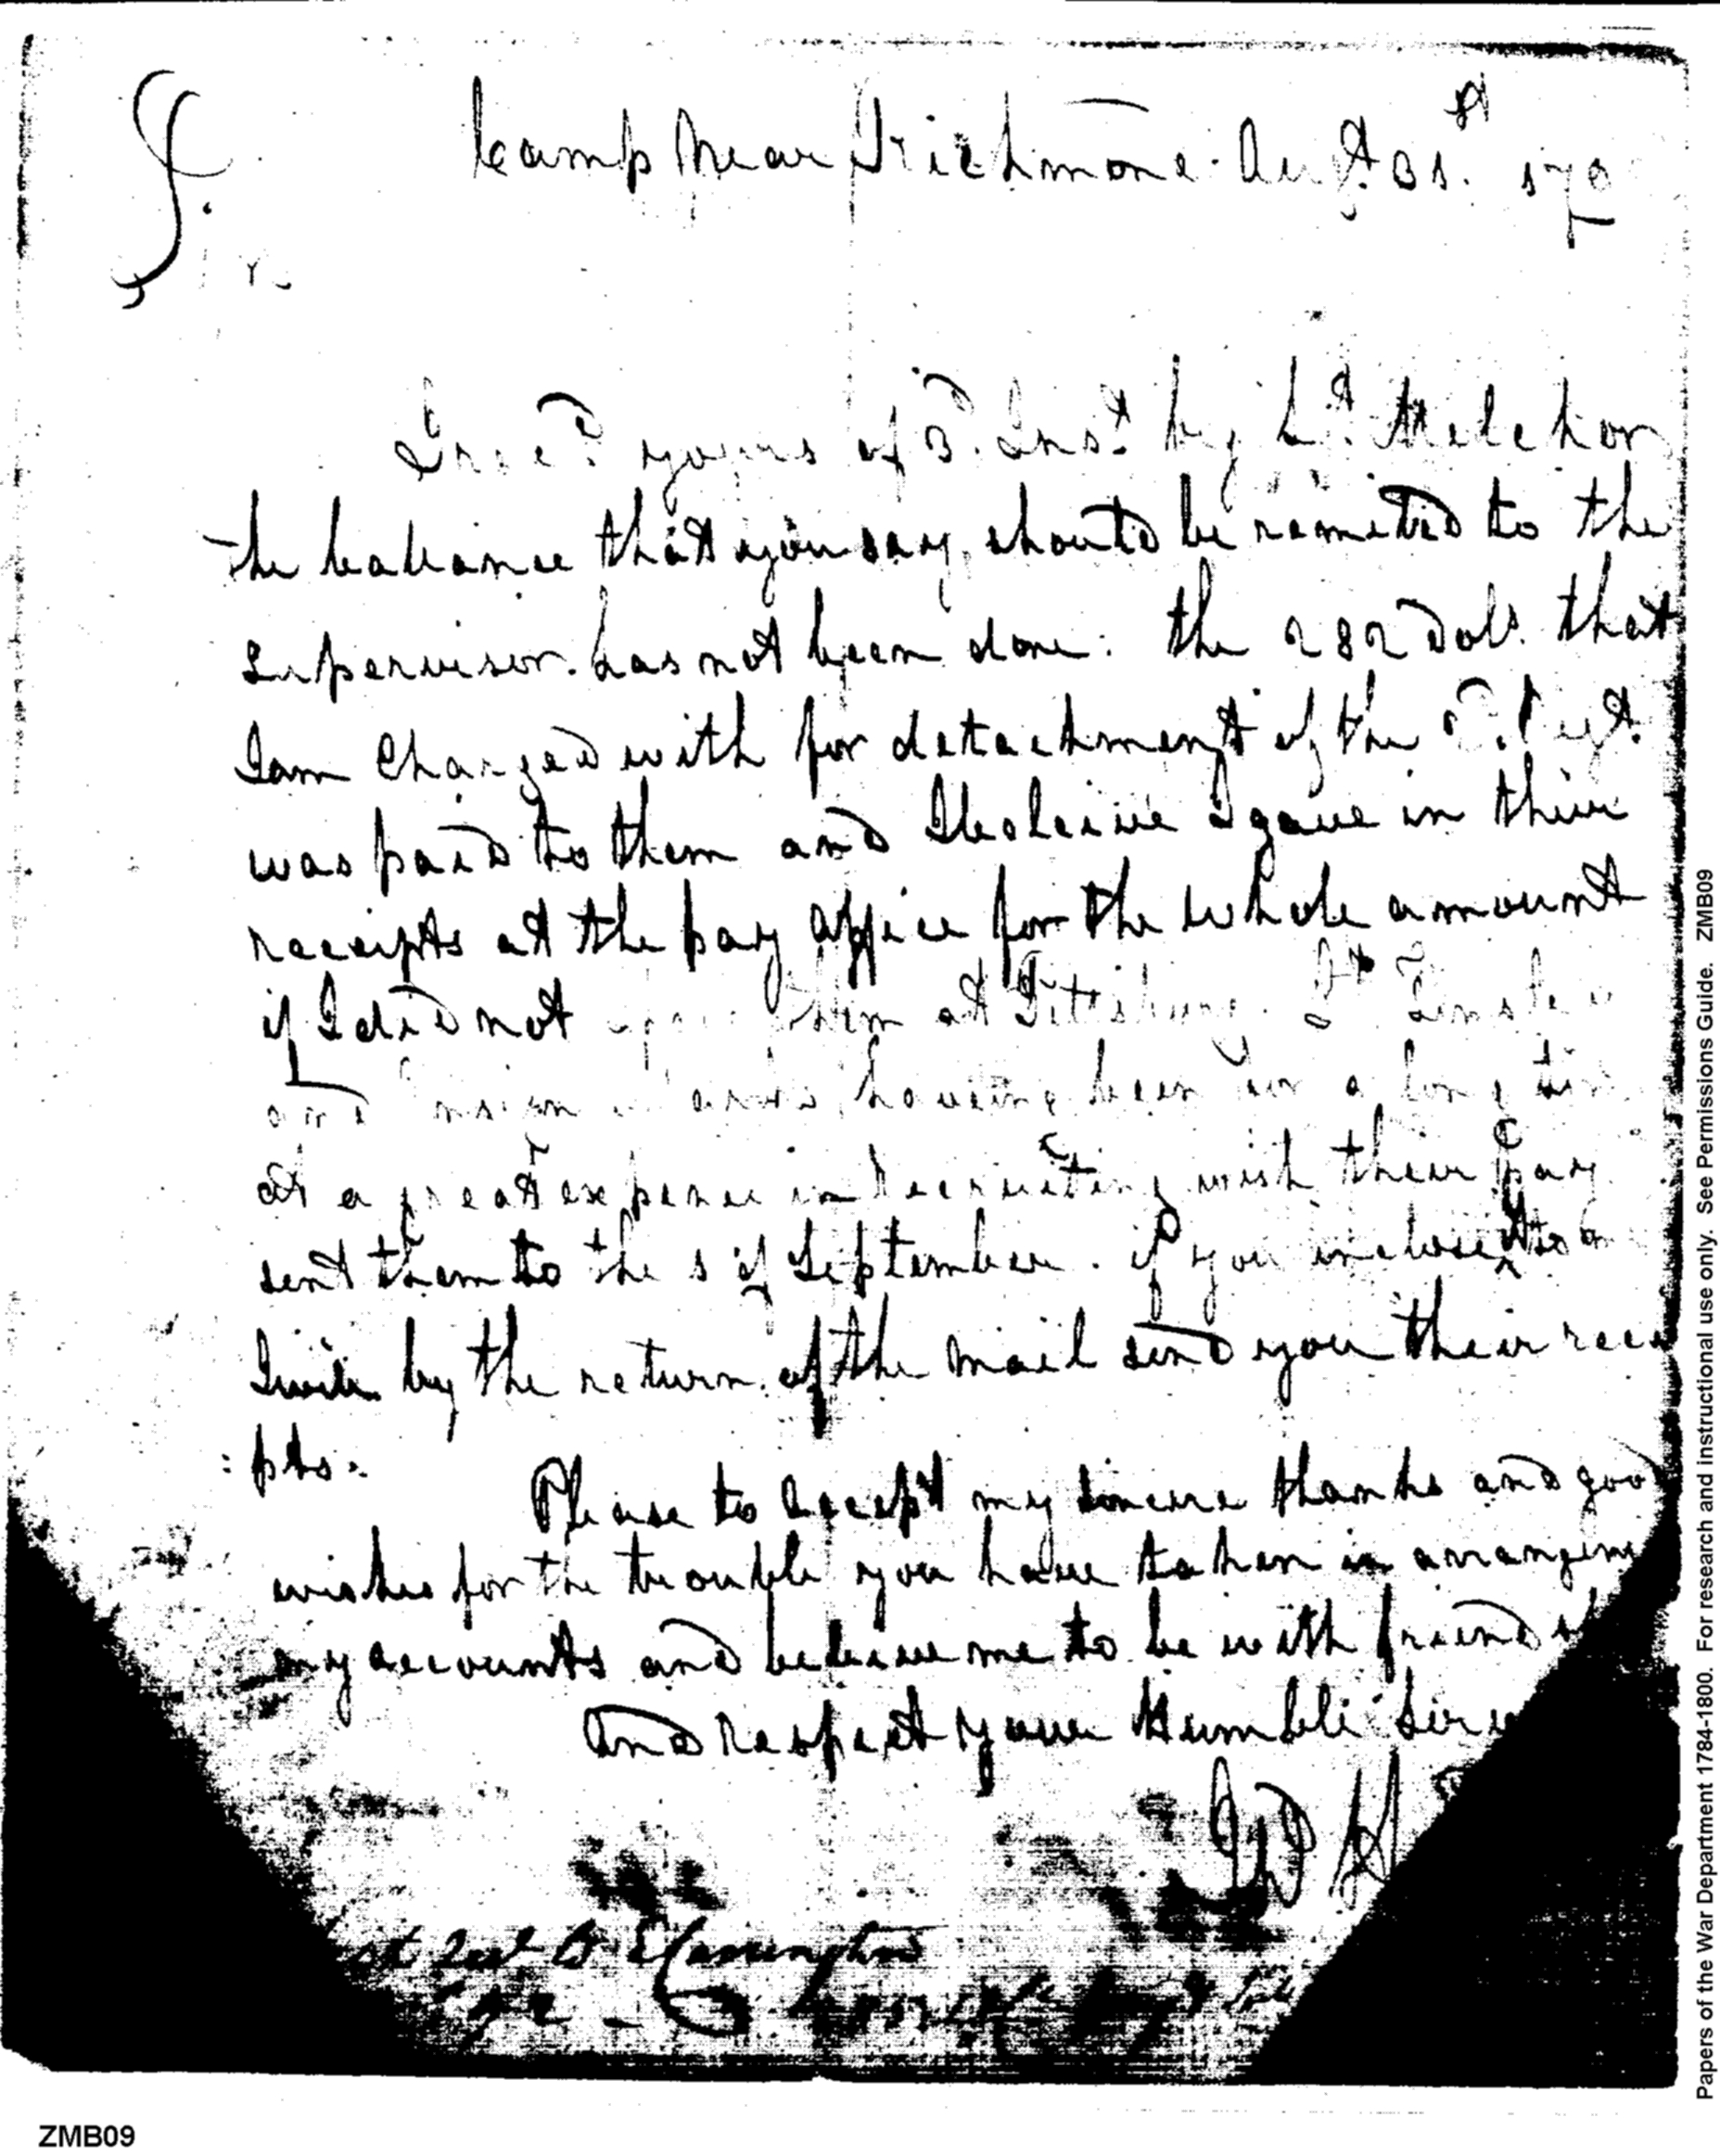 Camp Near Richmond Augt. 31. st 179
Sir
I recd. yours of 3d. Inst. by Lt. Melchor
the baliance that you say should be remited to the
supervisor. has not been done. the 282 Dols. that
I am Charged with for detachment of the Regt.
was paid to them and I beleive I gave in their
receipts at the pay office for the whole amount
if I did not them at Pittsburg. Lt.
and having been for a long
at a great expense in recruiting wish their pay
sent them to the 1 of September. if you inclose it to
I will by the return of the mail send you their recei
: pts.
Please to accept my sincere thanks and good
wishes for the trouble you have taken in
my accounts and beleive me to be with friend
and Respect your Humble
Papers of the War Department 1784-1800. For research and instructional use only. See Permissions Guide. ZMB09
ZMB09